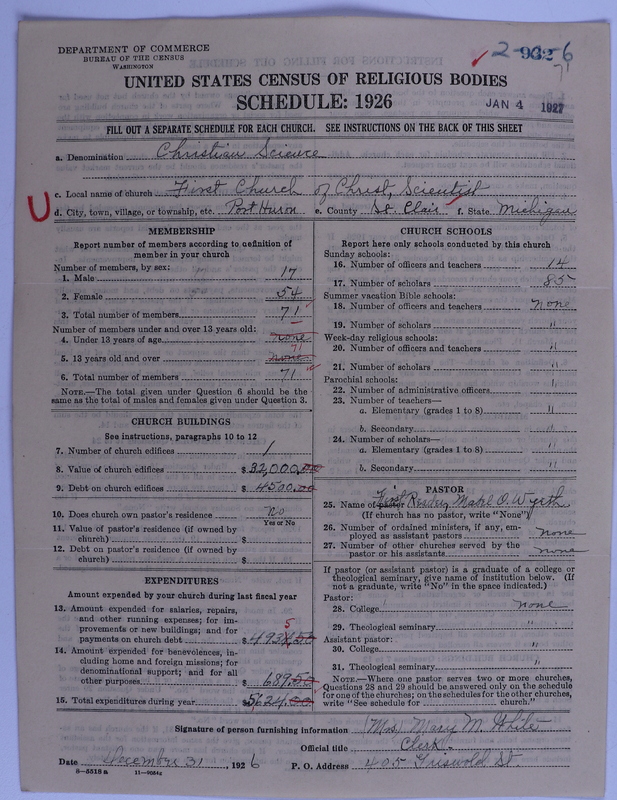 DEPARTMENT OF COMMERCE
BUREAU OF THE CENSUS
WASHINGTON
UNITED STATES CENSUS OF RELIGIOUS BODIES
SCHEDULE: 1926
JAN 4 1927
FILL OUT A SEPARATE SCHEDULE FOR EACH CHURCH. SEE INSTRUCTIONS ON THE BACK OF THIS SHEET
a. Denomination Christian Science
c. Local name of church First Church of Christ, Scientist
U
d. City, town, village, or township, etc. Port Huron e. County St. Clair f. State Michigan
MEMBERSHIP
Report number of members according to definition of
member in your church
Number of members, by sex:
1. Male 17
2. Female 54
3. Total number of members 71
Number of members under and over 13 years old:
4. Under 13 years of age none
5. 13 years old and over none 71
6. Total number of members 71
NOTE.—The total given under Question 6 should be
same as the total of males and females given under Question 3.
CHURCH BUILDINGS
See instructions, paragraphs 10 to 12
7. Number of church edifices 1
8. Value of church edifices $ 32,000.00
9. Debt on church edifices $ 4500.00
10. Does church own pastor's residence No
Yes or No
11. Value of pastor's residence (if owned by
church) $
12. Debt on pastor's residence (if owned by
church) $
EXPENDITURES
Amount expended by your church during last fiscal year
13. Amount expended for salaries, repairs,
and other running expenses; for im-
provements or new buildings; and for
payments on church debt $ 4934.50 5
14. Amount expended for benevolences, in-
cluding home and foreign missions; for
denominational support; and for all
other purposes $ 689.50
15. Total expenditures during year $ 5624.00
CHURCH SCHOOLS
Report here only schools conducted by this church
Sunday schools:
16. Number of officers and teachers 14
17. Number of scholars 85
Summer vacation Bible schools:
18. Number of officers and teachers none
19. Number of scholars "
Week-day religious schools:
20. Number of officers and teachers "
21. Number of scholars "
Parochial schools:
22. Number of administrative officers "
23. Number of teachers—
a. Elementary (grades 1 to 8) "
b. Secondary "
24. Number of scholars—
a. Elementary (grades 1 to 8) "
b. Secondary "
PASTOR
25. Name of pastor First Reader, Mabel O.
(If church has no pastor, write "None")
26. Number of ordained ministers, if any, em-
ployed as assistant pastors none
27. Number of other churches served by the
pastor or his assistants none
If pastor (or assistant pastor) is a graduate of a college or
theological seminary, give name of institution below. (If
not a graduate, write "No" in the space indicated.)
Pastor:
28. College none
29. Theological seminary "
Assistant pastor:
30. College "
31. Theological seminary "
NOTE.—Where one pastor serves two or more churches,
Questions 28 and 29 should be answered only on the schedule
for one of the churches; on the schedules for the other churches,
write "See schedule for church."
Signature of person furnishing information (Mrs) Mary M. White
Official title Clerk.
Date December 31, 1926 P. O. Address 405 Griswold St.
8—5518 a 11—9054